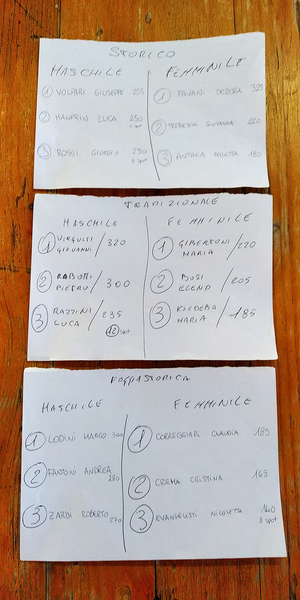 STORICO
MASCHILE
① VOLPARI GIUSEPPE 255
② MANFRIN LUCA 250
8 spot
③ ROSSI GIORGIO 250
FEMMINILE
① PAVANI DEBORA 325
② GIOVANNA 220
③ 180
TRADIZIONALE
MASCHILE
① VIRGULTI
GIOVANNI / 320
② RABOTTI
PIETRO / 300
③ RAZZINI
LUCA / 235
⑫ spot
FEMMINILE
① GIBERTONI
MARIA / 220
② BUSI
ELENA / 205
③ MARIA / 185
FOGGIA STORICA
MASCHILE
① LODINI MARCO 300
② FANTONI ANDREA
280
③ ZARDI ROBERTO 270
FEMMINILE
① CORREGGIARI CLAUDIA 185
② CREMA CRISTINA 165
③ EVANGELISTI NICOLETTA 140
8 spot